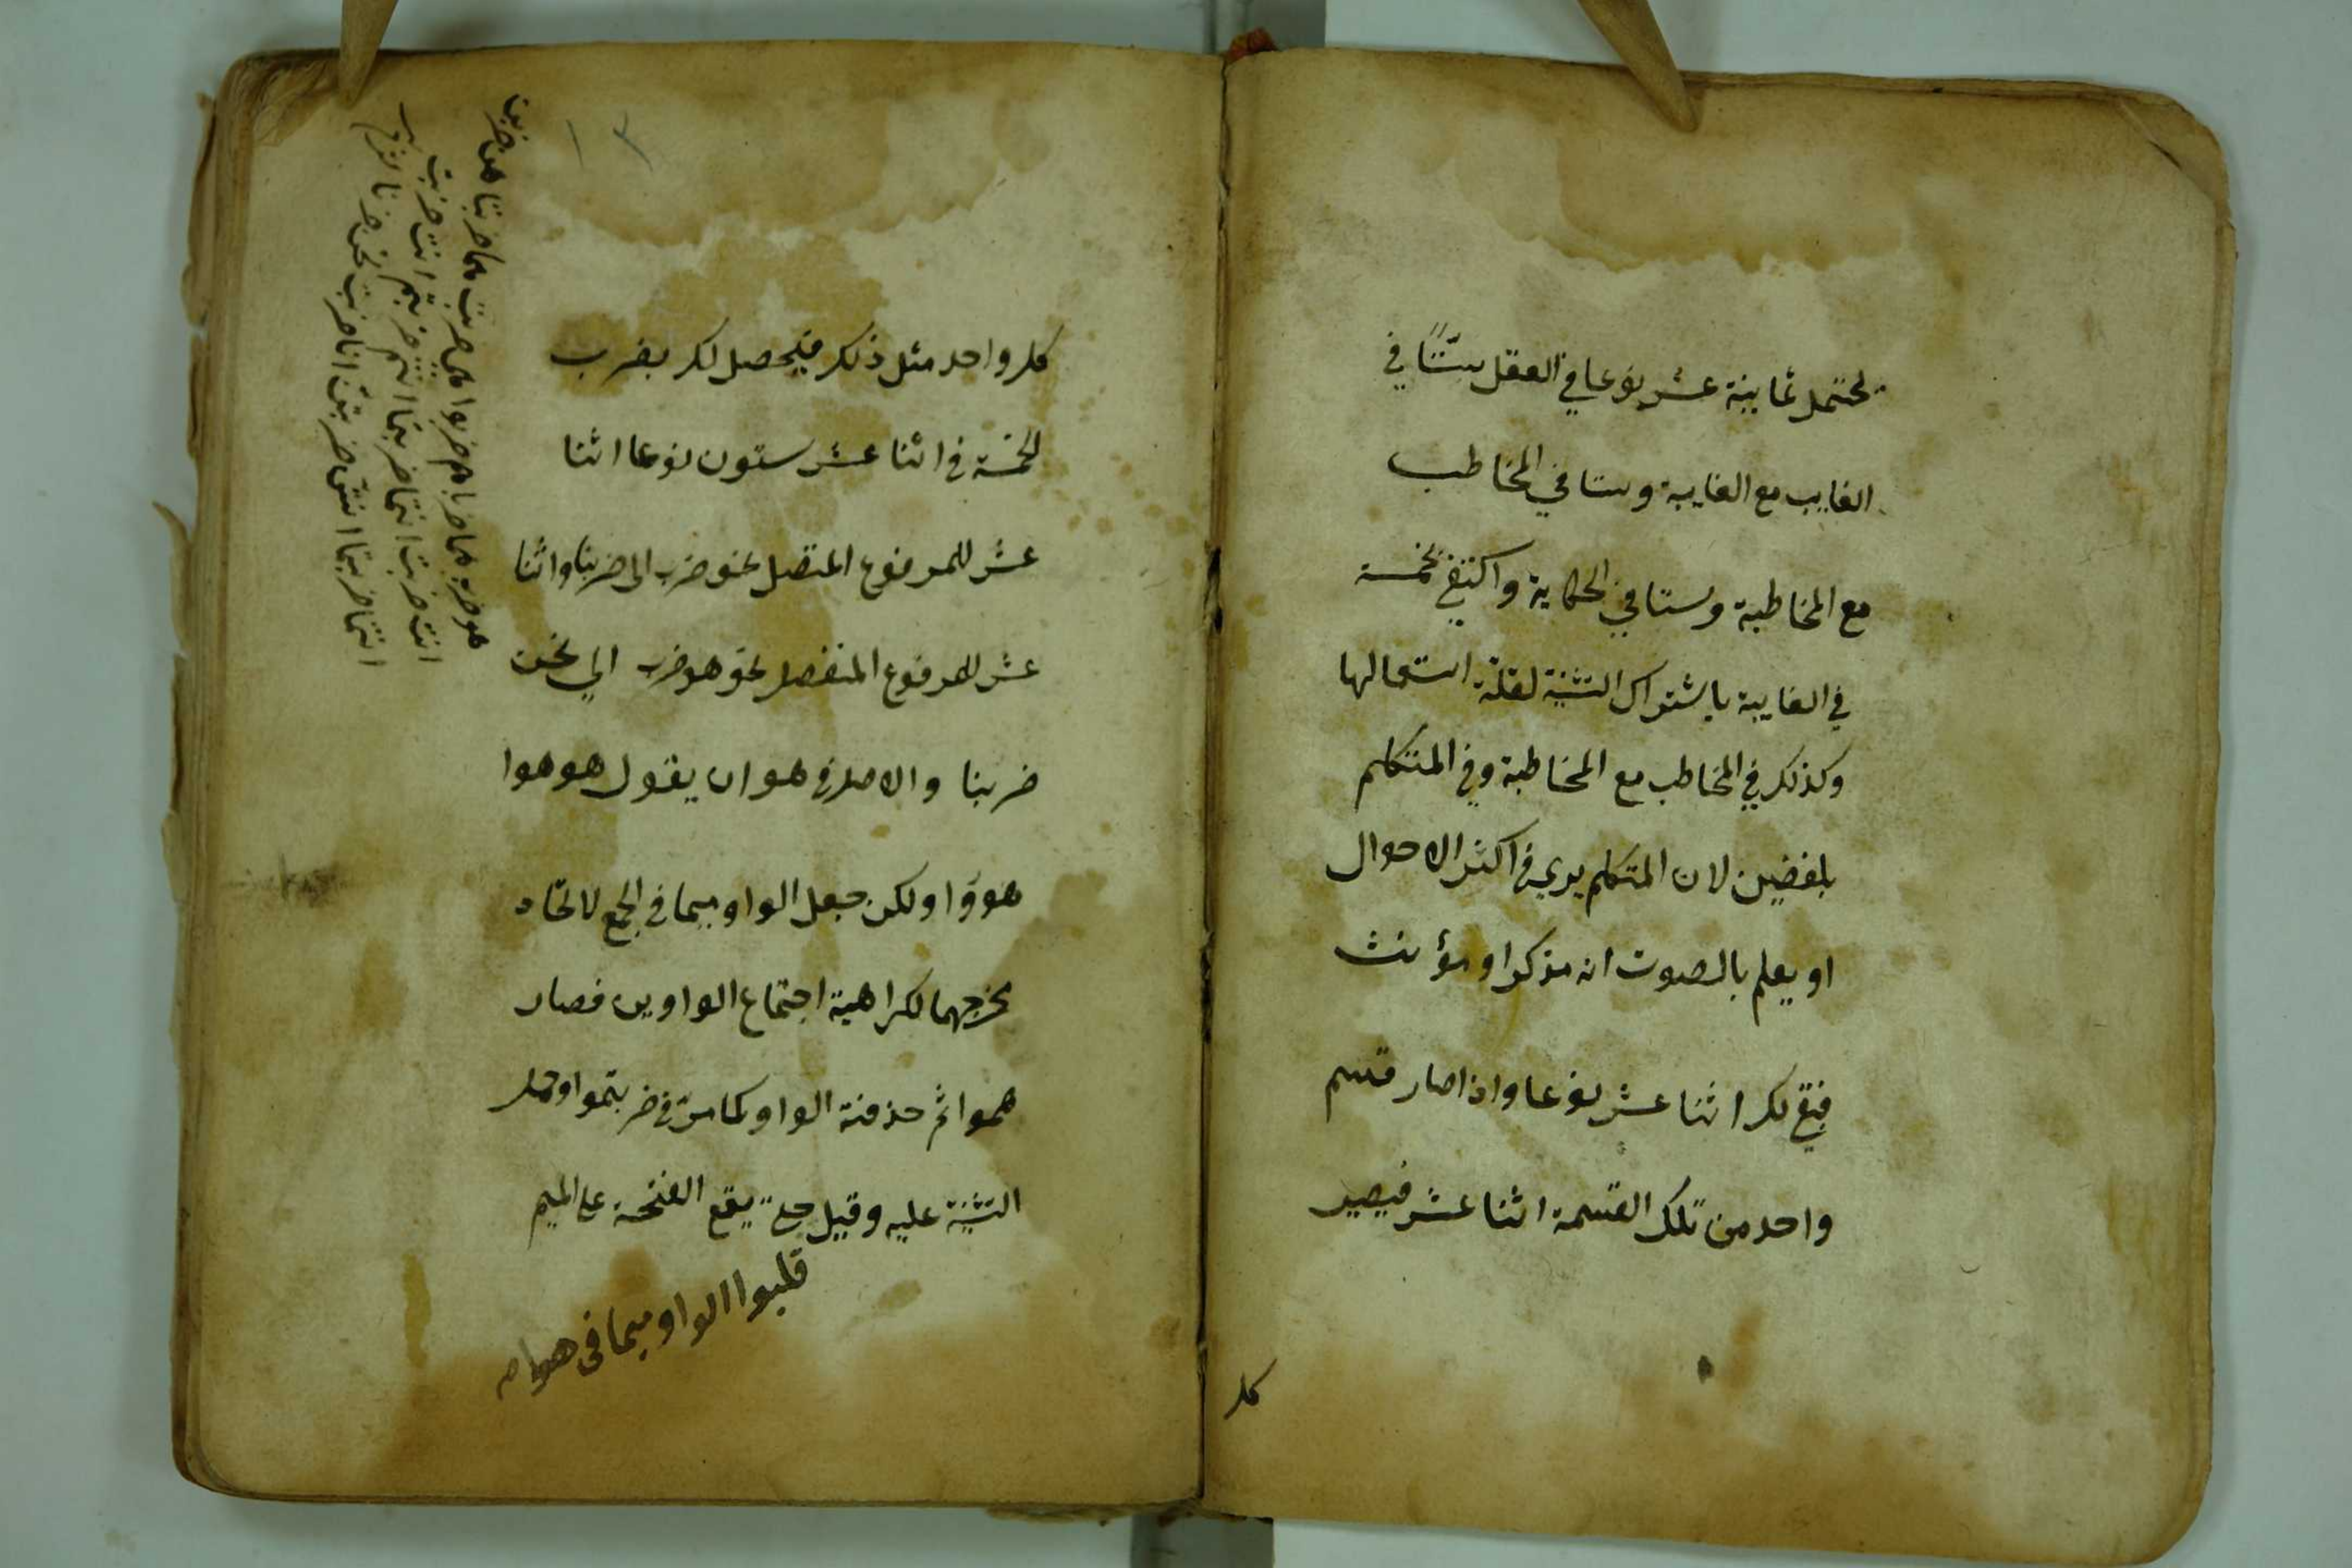 يحتمل ثمانية عشر نوعا في العقل ستّا في
الغايب مع الغايبة وستا في المخاطب
مع المخاطبة وستا في الحكاية واكتفي بخمسة
في الغايبة باشتراك التثنية لقلة استعمالها
وكذلك في المخاطب مع المخاطبة وفي المتكلم
بلفضين لان المتكلم يري في اكثر الاحوال
او يعلم بالصوت انه مذكر او مؤنث
فبقي لك اثنا عشر نوعا واذا صار قسم
واحد من تلك القسمة اثنا عشر فيصير
كل
كل واحد مثل ذلك فيحصل لك بضرب
الخمسة في اثنا عشر ستون نوعا اثنا
عشر للمرفوع المتصل نحو ضرب الى ضربنا واثنا
عشر للمرفوع المنفصل نحو هو ضرب الي نحن
ضربنا والاصل في هو ان يقول هو هوا
هووا ولكن جعل الواو ميما في الجمع لاتحاد
مخرجهما لكراهية اجتماع الواوين فصار
هموا ثم حذفت الواو كما مر في ضربتموا وحمل
التثنية عليه وقيل حتى يقع الفتحة على الميم
قلبوا الواو ميما في هوا
هو ضرب هما ضربا هم ضربوا هي ضربت هما ضربتا هن ضربن
انت ضربت انتما ضربتما انتم ضربتم انت ضربت
انتما ضربتما انتن ضربتن انا ضربت نحن ضربنا
١٣